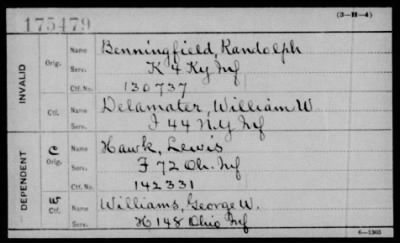 175479
(3—H—4)
INVALID
Orig. Name Benningfield, Randolph
Serv. K 4 Ky Inf
Ctf. No. 130737
Ctf. Name Delamater, William W.
Serv. I 44 N.Y Inf
DEPENDENT
C Orig. Name Hawk, Lewis
Serv. F 72 Oh. Inf
Ctf. No. 142331
Ctf. Name Williams, George W.
Serv. H 148 Ohio Inf
6—1365